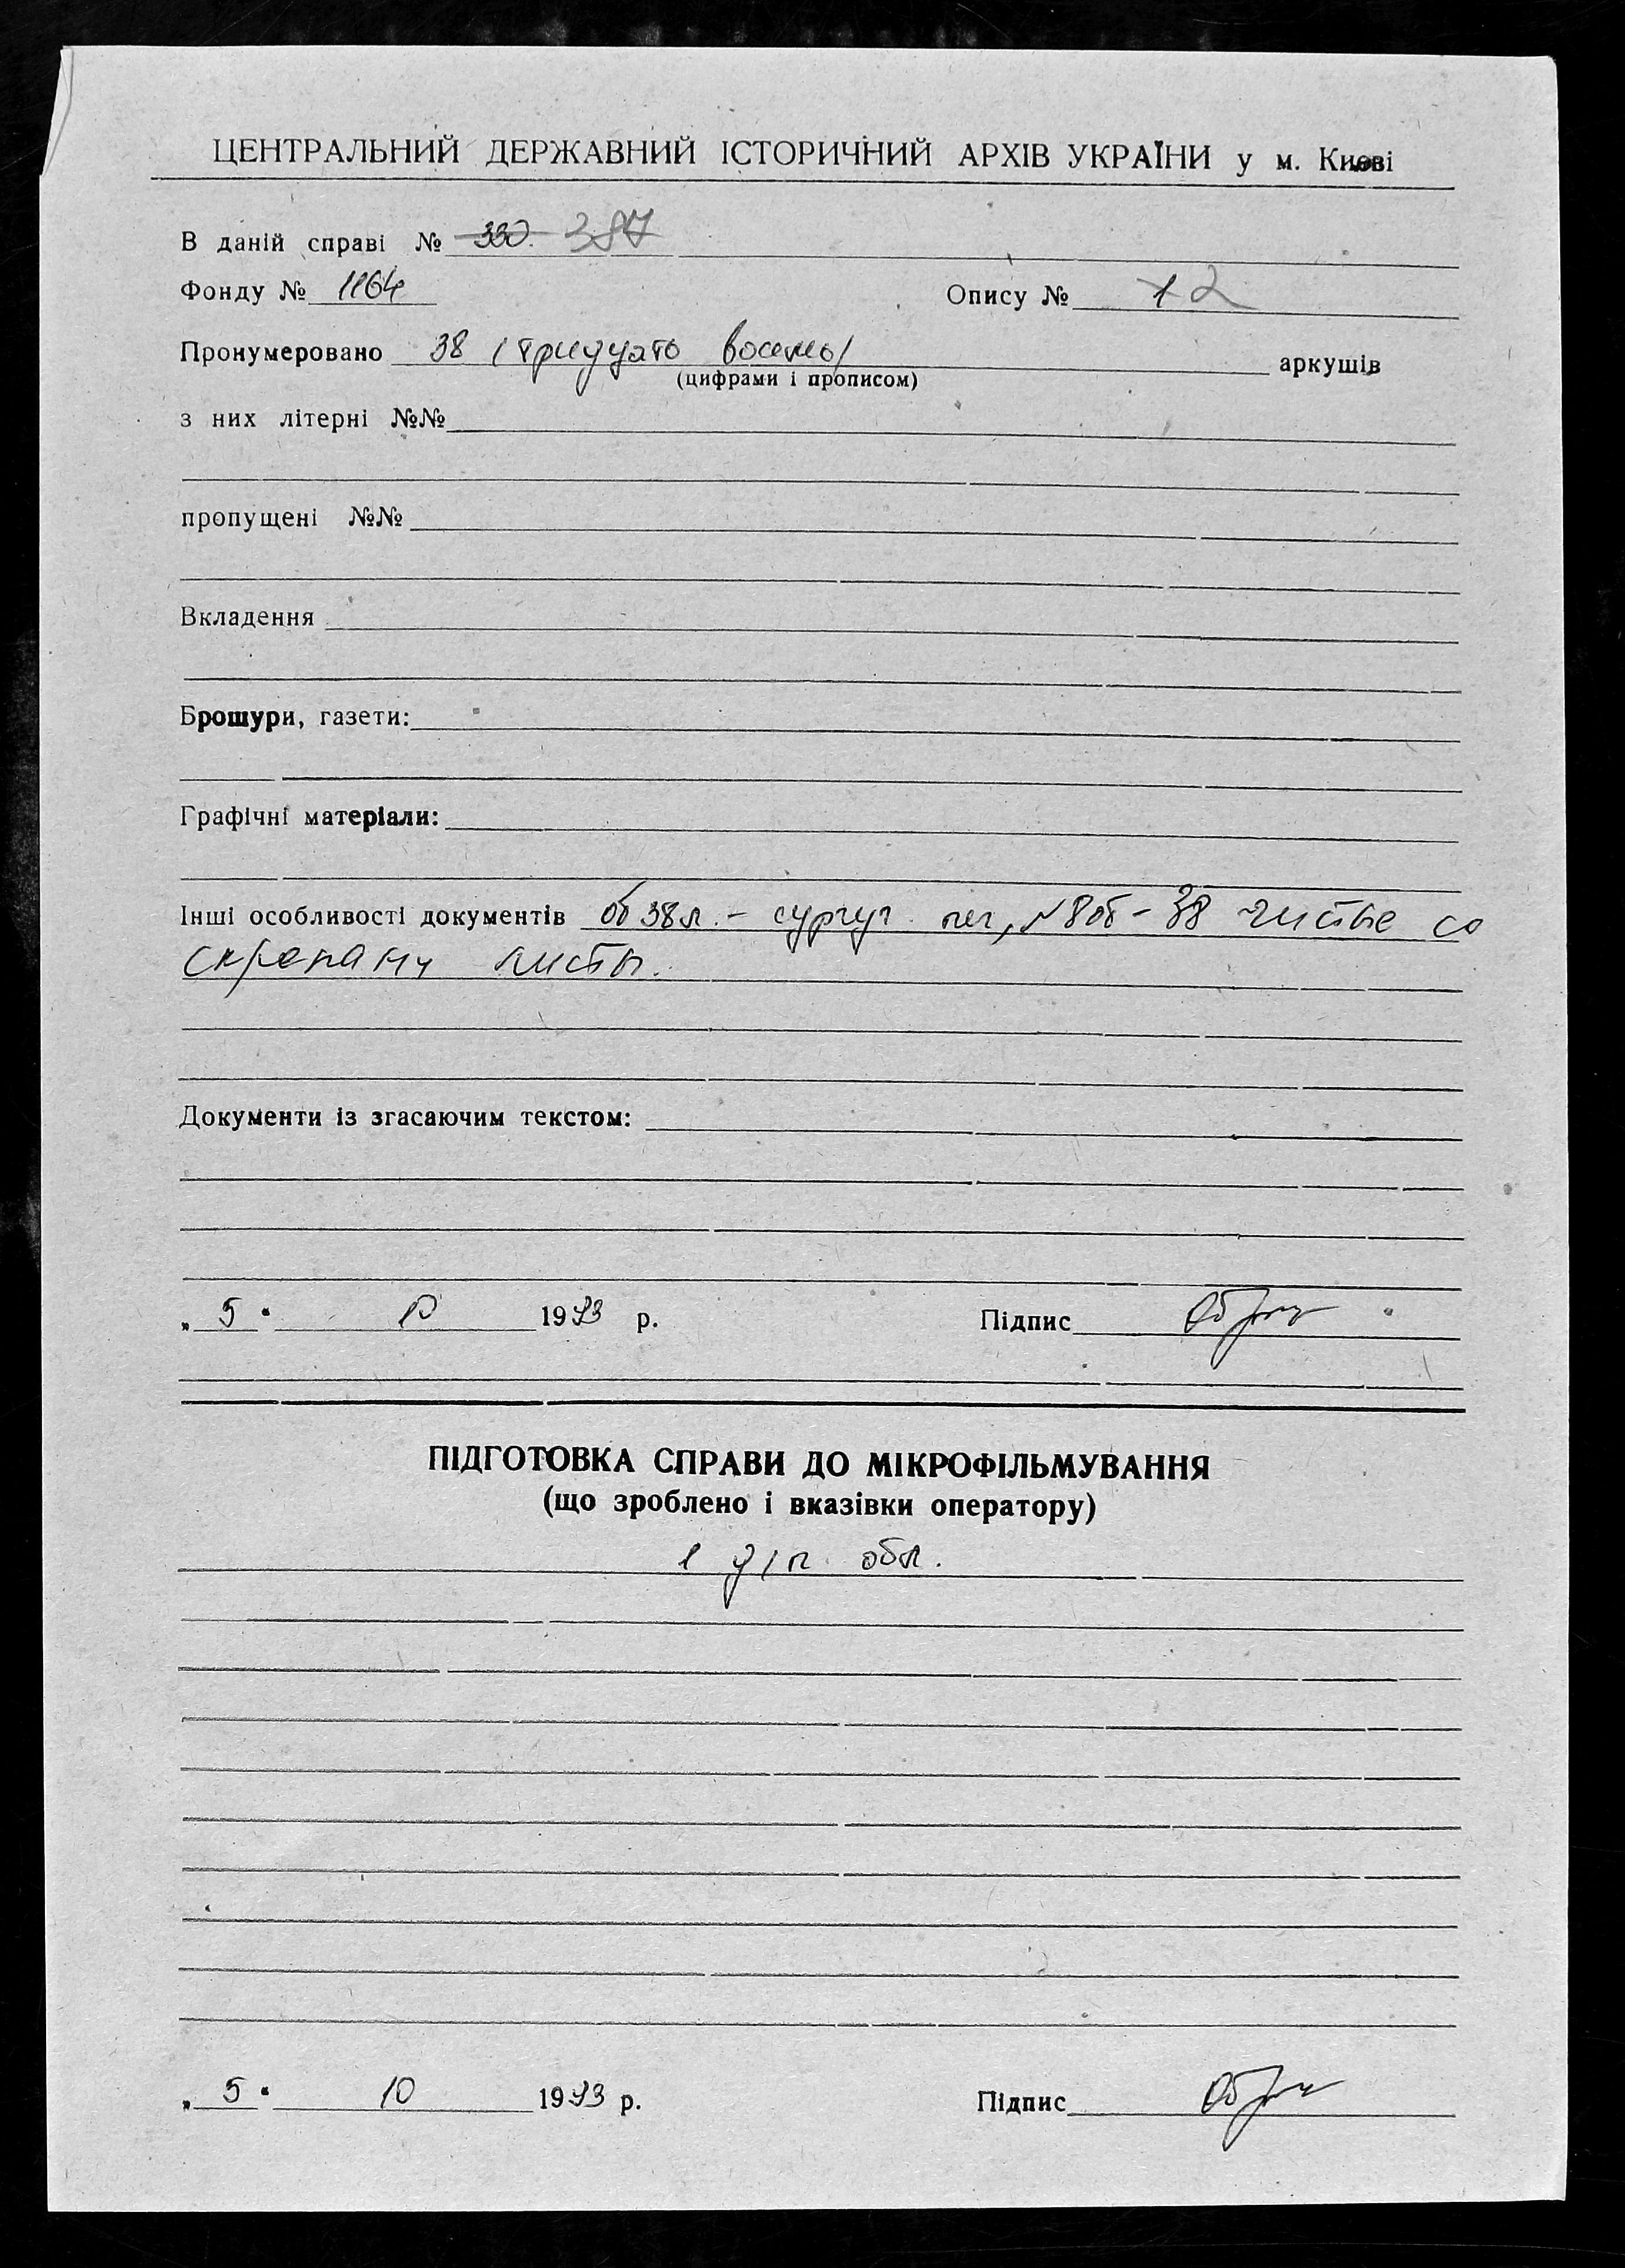 ЦЕНТРАЛЬНИЙ ДЕРЖАВНИЙ ІСТОРИЧНИЙ АРХІВ УКРАЇНИ у м. Києві
В даній справі № 330. 387
Фонду № 1164 Опису № 1 2
Пронумеровано 38 (тридцать восемь) аркушів
(цифрами і прописом)
з них літерні №№
пропущені №№
Вкладення
Брошури, газети:
Графічні матеріали:
Інші особливості документів об 38 л. – сургуч. печ, 8об – 38 чистые со
скрепами листы.
Документи із згасаючим текстом:
„ 5 “ 10 1993 р. Підпис
ПІДГОТОВКА СПРАВИ ДО МІКРОФІЛЬМУВАННЯ
(що зроблено і вказівки оператору)
1 обл.
„ 5 “ 10 1993 р. Підпис